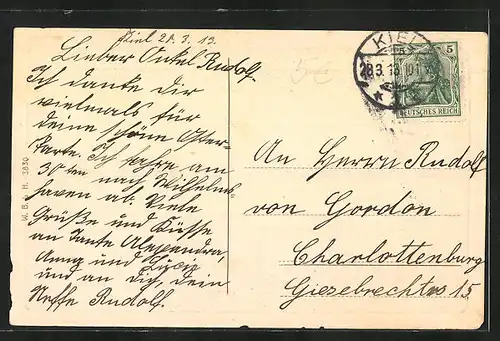 Kiel 28. 3. 13.
Lieber Onkel Rudolf.
Ich danke dir
vielmals für
deine schöne Oster-
karte. Ich fahre am
30ten nach Wilhelms-
haven ab. Viele
Grüße und Küsse
an Tante Alexandra,
Anna und
und an dich, dein
Neffe Rudolf.
W. B. H. 1830
KIEL
28.3.13
5
DEUTSCHES REICH
An Herrn Rudolf
von Gordon
Charlottenburg
Giesebrechtstr 15.